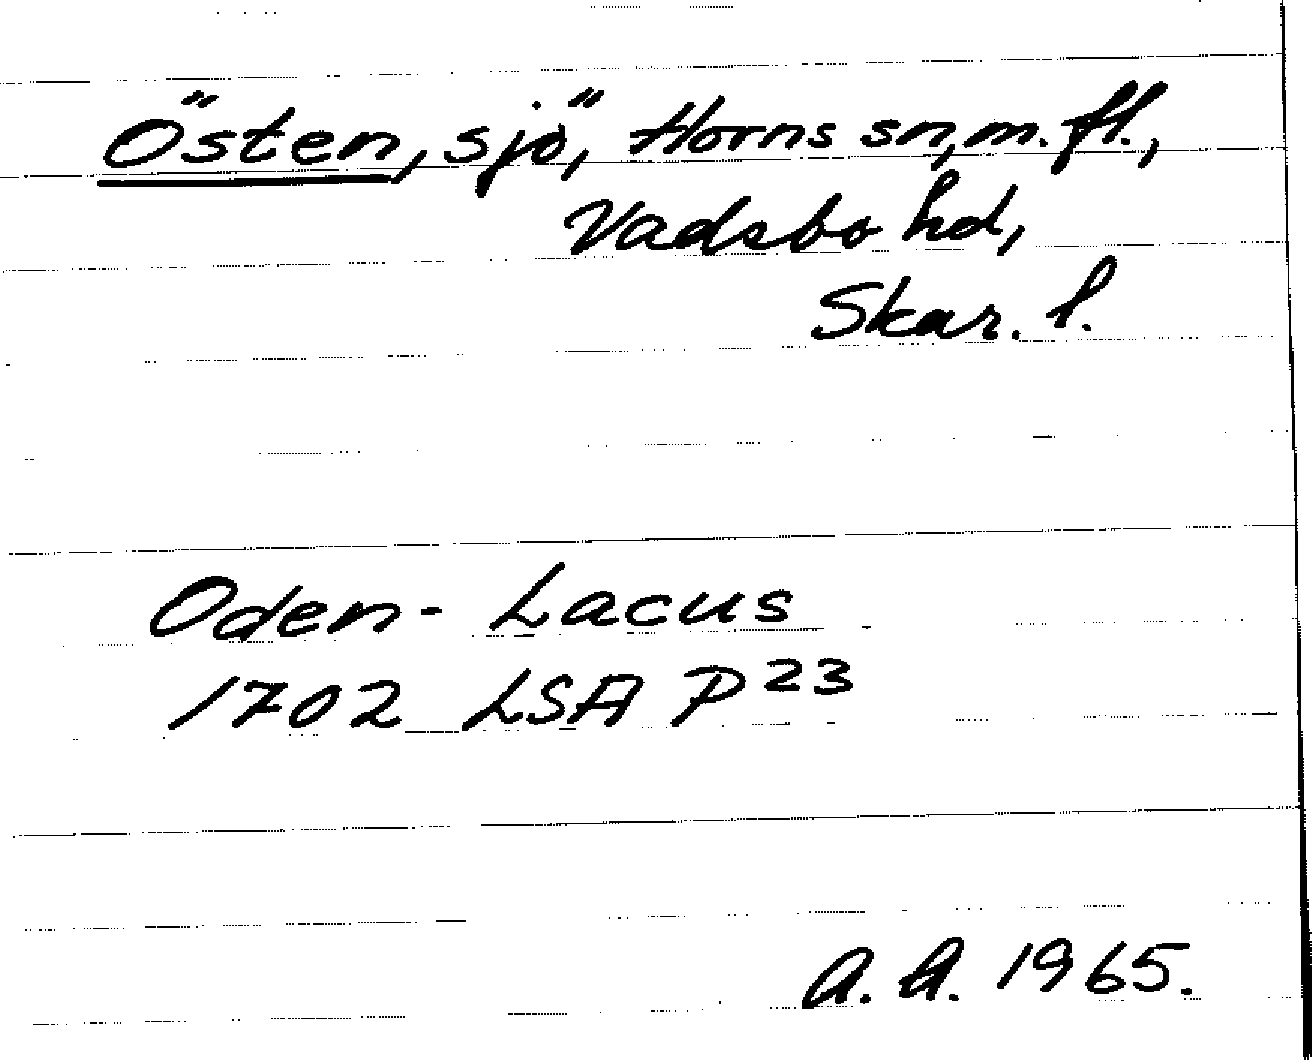 Östen, sjö, Horns sn, m. fl.,
Vadsbo hd,
Skar. l.
Oden- Lacus
1702 LSA P 23
A. A. 1965.